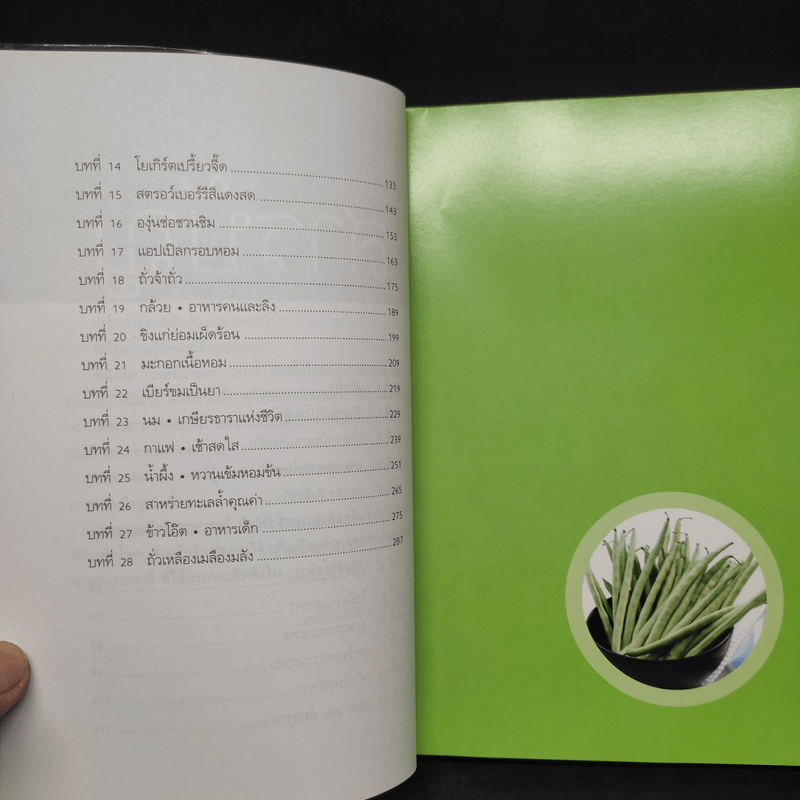 บทที่ 14 โยเกิร์ตเปรี้ยวจี๊ด 133
บทที่ 15 สตรอว์เบอร์รีสีแดงสด 143
บทที่ 16 องุ่นช่อชวนชิม 153
บทที่ 17 แอปเปิลกรอบหอม 163
บทที่ 18 ถั่วจ้าถั่ว 175
บทที่ 19 กล้วย • อาหารคนและลิง 189
บทที่ 20 ขิงแก่ย่อมเผ็ดร้อน 199
บทที่ 21 มะกอกเนื้อหอม 209
บทที่ 22 เบียร์ขมเป็นยา 219
บทที่ 23 นม • เกษียรธาราแห่งชีวิต 229
บทที่ 24 กาแฟ • เช้าสดใส 239
บทที่ 25 น้ำผึ้ง • หวานเข้มหอมข้น 251
บทที่ 26 สาหร่ายทะเลล้ำคุณค่า 265
บทที่ 27 ข้าวโอ๊ต • อาหารเด็ก 275
บทที่ 28 ถั่วเหลืองเมลืองมลัง 287